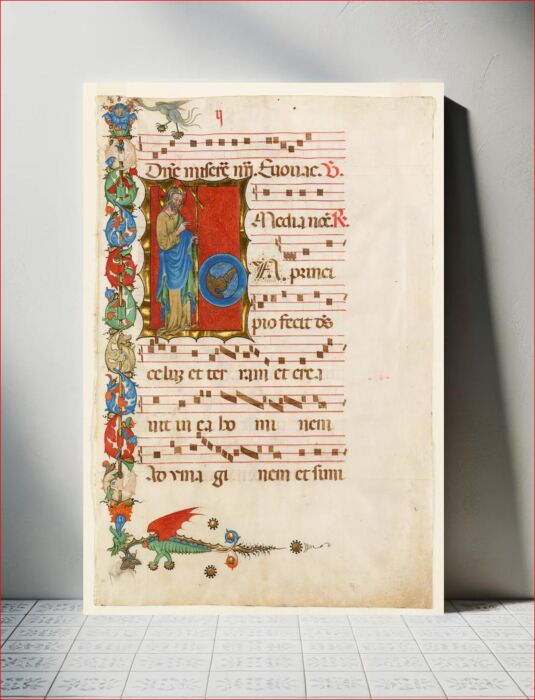 Dñe miserẽ nr̃i. Euouae. V̄.
Media noc̃. R̄.
IN principi
pio fecit d̄s
celuȝ et ter ram et crea
uit in ea ho mi nem
Ad yma gi nem et simi